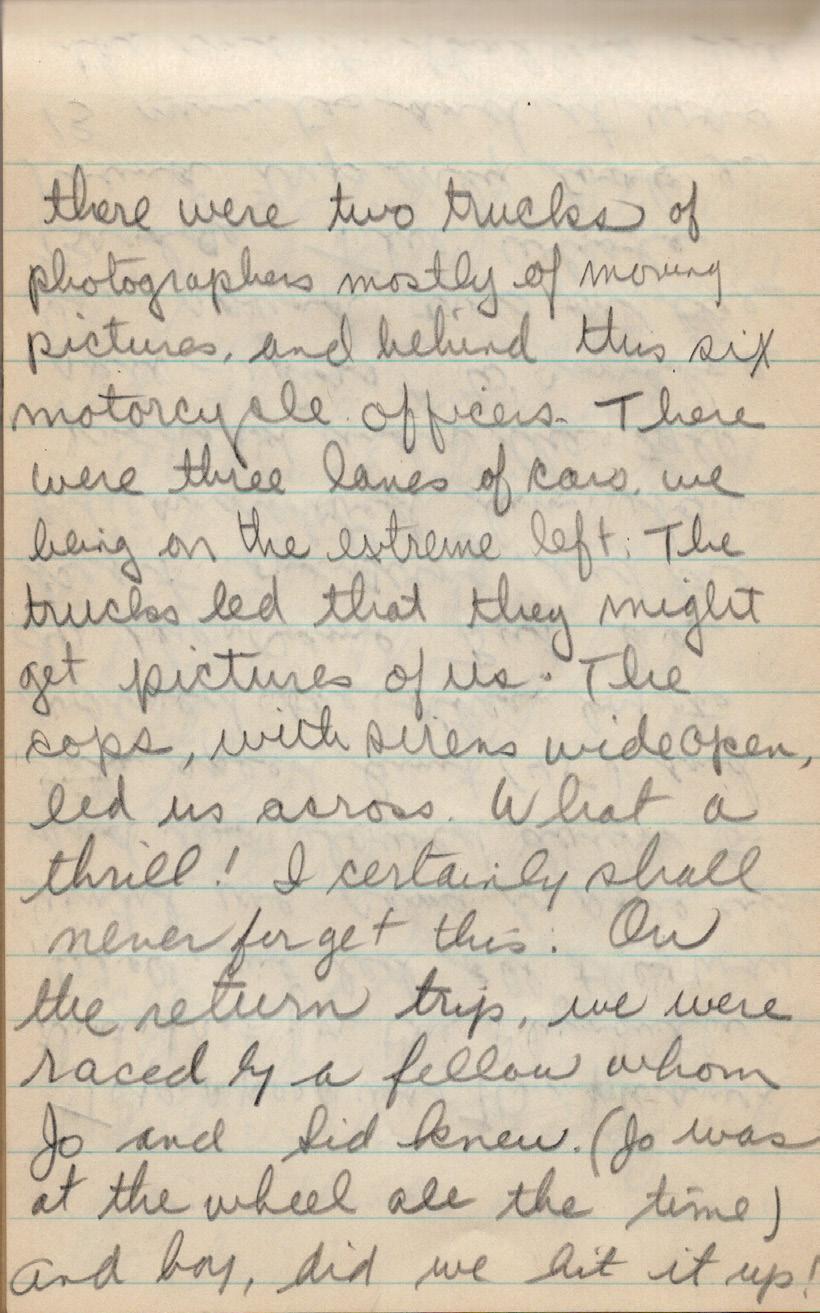 there were two trucks of
photographers mostly of moving
pictures, and behind this six
motorcycle officers. There
were three lanes of cars, we
being on the extreme left. The
trucks led that they might
get pictures of us. The
cops, with sirens wide open,
led us across. What a
thrill! I certainly shall
never forget this. On
the return trip, we were
raced by a fellow whom
Jo and Sid knew. (Jo was
at the wheel all the time)
and boy, did we hit it up!